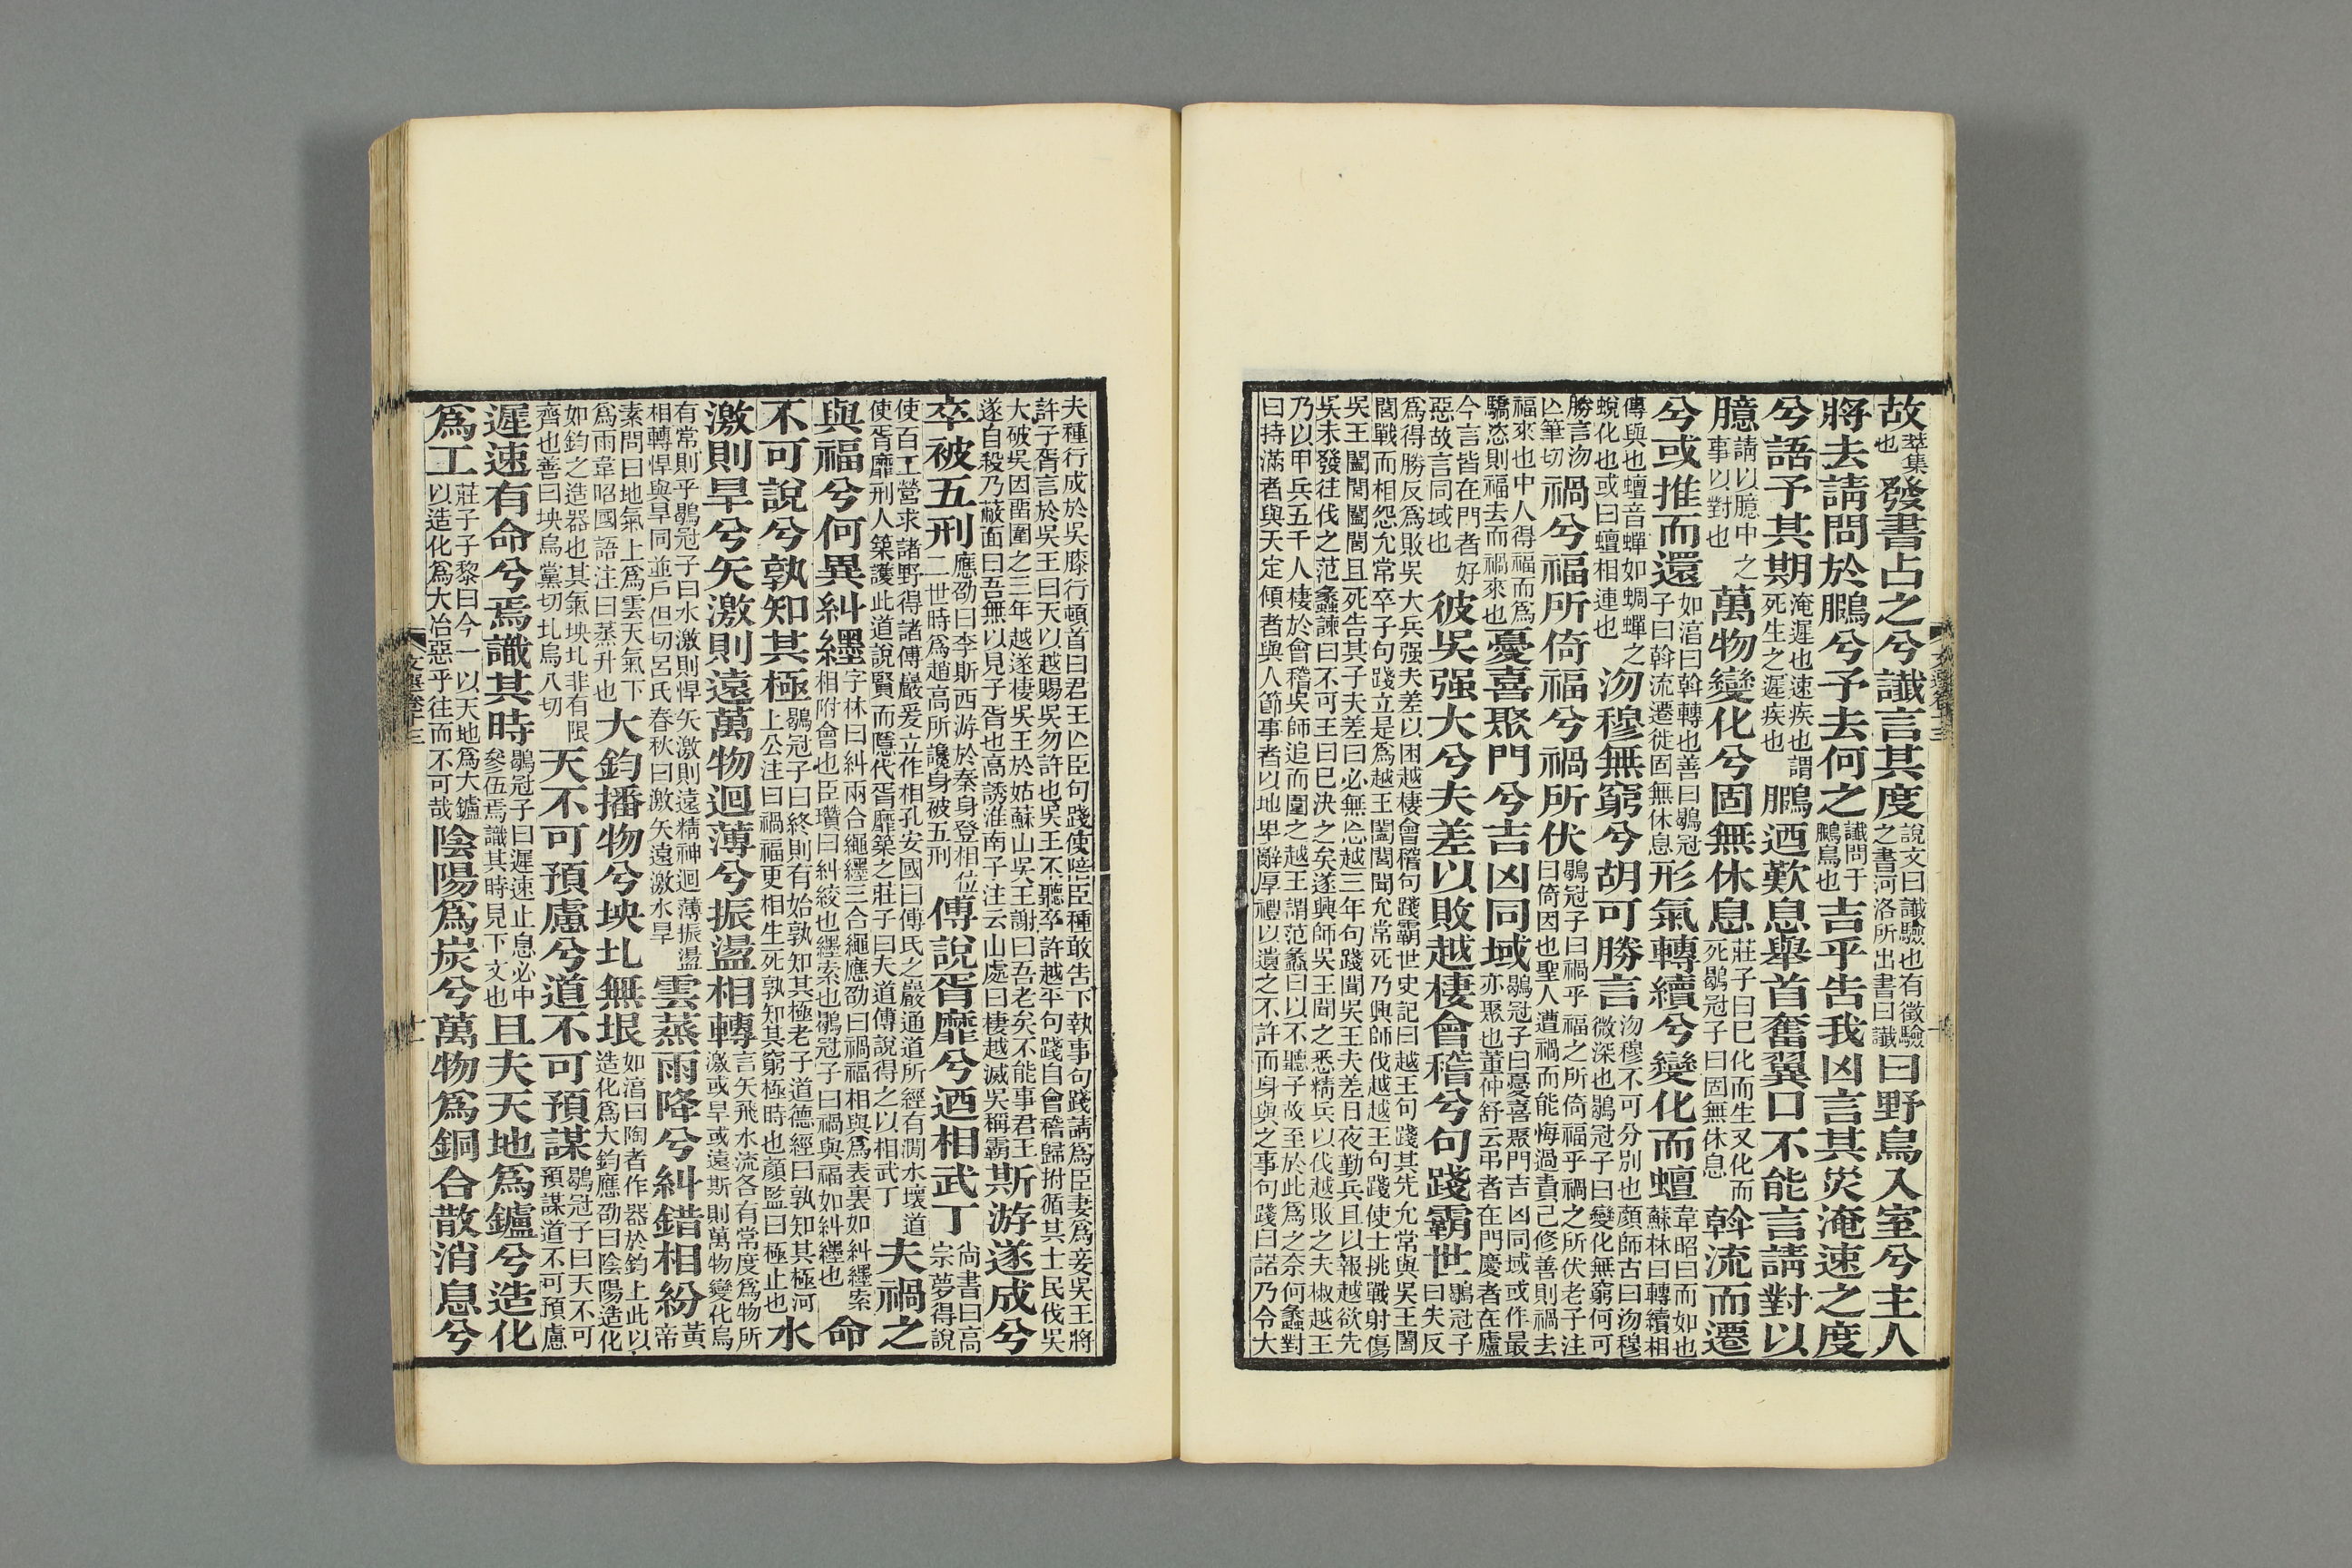 故萃集也發書占之兮讖言其度說文曰讖驗也有徵驗之書河洛所出書曰讖曰野鳥入室兮主人
將去請問於鵩兮予去何之讖問于鵩鳥也吉乎告我凶言其災淹速之度
兮語予其期淹遲也速疾也謂死生之遲疾也鵩迺歎息舉首奮翼口不能言請對以
臆請以臆中之事以對也萬物變化兮固無休息莊子曰已化而生又化而死鶡冠子曰固無休息斡流而遷
兮或推而還如湻曰斡轉也善曰鶡冠子曰斡流遷徙固無休息形氣轉續兮變化而蟺韋昭曰而如也蘇林曰轉續相
傳與也蟺音蟬如蜩蟬之蛻化也或曰蟺相連也沕穆無窮兮胡可勝言沕穆不可分別也顏師古曰沕穆微深也鶡冠子曰變化無窮何可
勝言沕亾筆切禍兮福所倚福兮禍所伏鶡冠子曰禍乎福之所倚福乎禍之所伏老子注曰倚因也聖人遭禍而能悔過責己修善則禍去
福來也中人得福而爲驕恣則福去而禍來也憂喜聚門兮吉凶同域鶡冠子曰憂喜聚門吉凶同域或作最亦聚也董仲舒云弔者在門慶者在廬
今言皆在門者好惡故言同域也彼吳强大兮夫差以敗越棲會稽兮句踐霸世鶡冠子曰失反
爲得勝反爲敗吳大兵强夫差以困越棲會稽句踐霸世史記曰越王句踐其先允常與吳王闔
閭戰而相怨允常卒子句踐立是爲越王闔閭聞允常死乃興師伐越越王句踐使士挑戰射傷
吳王闔閭闔閭且死告其子夫差曰必無忘越三年句踐聞吳王夫差日夜勤兵且以報越欲先
吳未發往伐之范蠡諫曰不可王曰已決之矣遂興師吳王聞之悉精兵以伐越敗之夫椒越王
乃以甲兵五千人棲於會稽吳師追而圍之越王謂范蠡曰以不聽子故至於此爲之奈何蠡對
曰持滿者與天定傾者與人節事者以地卑辭厚禮以遺之不許而身與之事句踐曰諾乃令大
夫種行成於吳膝行頓首曰君王亾臣句踐使陪臣種敢告下執事句踐請爲臣妻爲妾吳王將
許子胥言於吳王曰天以越賜吳勿許也吳王不聽卒許越平句踐自會稽歸拊循其士民伐吳
大破吳因畱圍之三年越遂棲吳王於姑蘇山吳王謝曰吾老矣不能事君王
遂自殺乃蔽面曰吾無以見子胥也高誘淮南子注云山處曰棲越滅吳稱霸斯游遂成兮
卒被五刑應劭曰李斯西游於秦身登相位二世時爲趙高所讒身被五刑傅說胥靡兮迺相武丁尚書曰高宗夢得說
使百工營求諸野得諸傅巖爰立作相孔安國曰傅氏之巖通道所經有澗水壞道使胥靡刑人築護此道說賢而隱代胥靡築之莊子曰夫道傅說得之以相武丁夫禍之
與福兮何異糾纆字林曰糾兩合繩纆三合繩應劭曰禍福相與爲表裏如糾纆索相附會也臣瓚曰糾絞也纆索也鶡冠子曰禍與福如糾纆也命
不可說兮孰知其極鶡冠子曰終則有始孰知其極老子道德經曰孰知其極河上公注曰禍福更相生死孰知其窮極時也顏監曰極止也水
激則旱兮矢激則遠萬物迴薄兮振盪相轉言矢飛水流各有常度爲物所激或旱或遠斯則萬物變化烏
有常則乎鶡冠子曰水激則悍矢激則遠精神迴薄振盪相轉悍與旱同並戶但切呂氏春秋曰激矢遠激水旱雲蒸雨降兮糾錯相紛黃帝
素問曰地氣上爲雲天氣下爲雨韋昭國語注曰蒸升也大鈞播物兮坱圠無垠如湻曰陶者作器於鈞上此以造化爲大鈞應劭曰陰陽造化
如鈞之造器也其氣坱圠非有限齊也善曰坱烏黨切圠烏八切天不可預慮兮道不可預謀鶡冠子曰天不可預謀道不可預慮
遲速有命兮焉識其時鶡冠子曰遲速止息必中參伍焉識其時見下文也且夫天地爲鑪兮造化
爲工莊子子黎曰今一以天地爲大鑪以造化爲大冶惡乎往而不可哉陰陽爲炭兮萬物爲銅合散消息兮
文選卷十三
十一